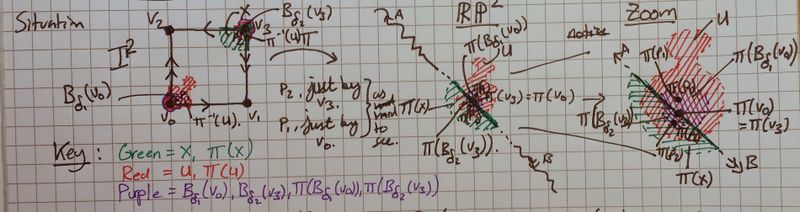 Situation
I²
V₂
X
V₃
B_δ₂(V₃)
π⁻¹(U)
B_δ₁(V₀)
V₀
π⁻¹(U).
V₁
P₂, just by V₃.
P₁, just by V₀.
as
hard
to
see.
A
RP²
π(B_δ₁(V₀))
U
π(X)
π(V₃) = π(V₀)
π(B_δ₂(V₃)).
B
Zoom
A
U
π(P₁)
π(B_δ₁(V₀))
π(V₀)
= π(V₃)
π(B_δ₂(V₃))
π(P₂)
π(X)
B
Key :
Green = X, π(X)
Red = U, π(U)
Purple = B_δ₁(V₀), B_δ₂(V₃), π(B_δ₁(V₀)), π(B_δ₂(V₃))